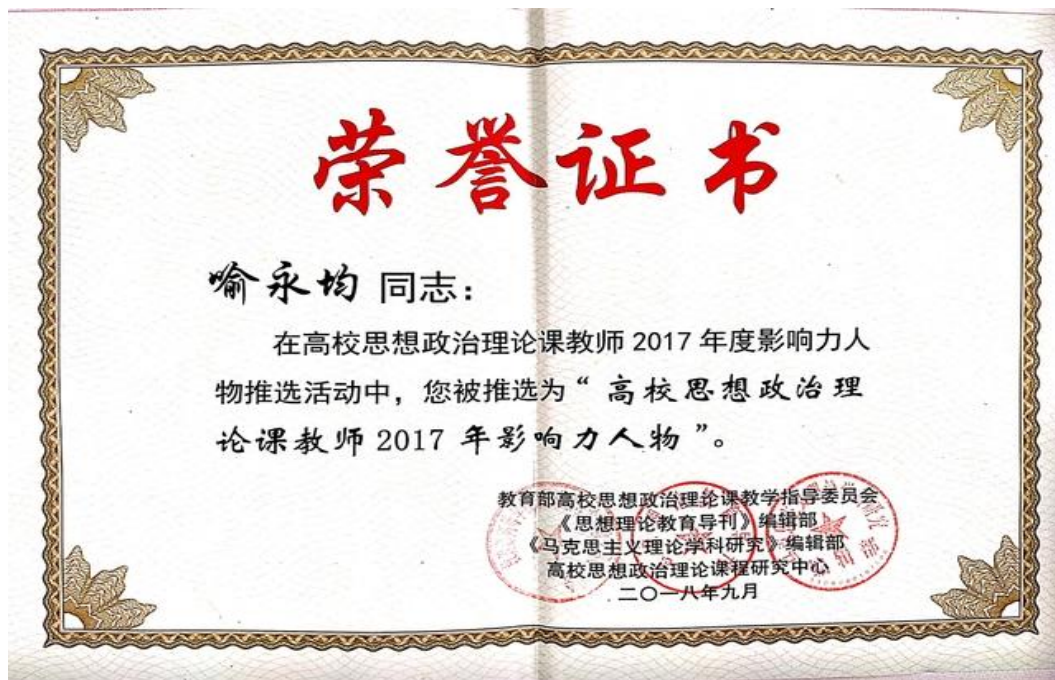 荣誉证书
喻永均 同志：
在高校思想政治理论课教师 2017 年度影响力人
物推选活动中，您被推选为“高校思想政治理
论课教师 2017 年影响力人物”。
教育部高校思想政治理论课教学指导委员会
《思想理论教育导刊》编辑部
《马克思主义理论学科研究》编辑部
高校思想政治理论课程研究中心
二〇一八年九月
编辑部